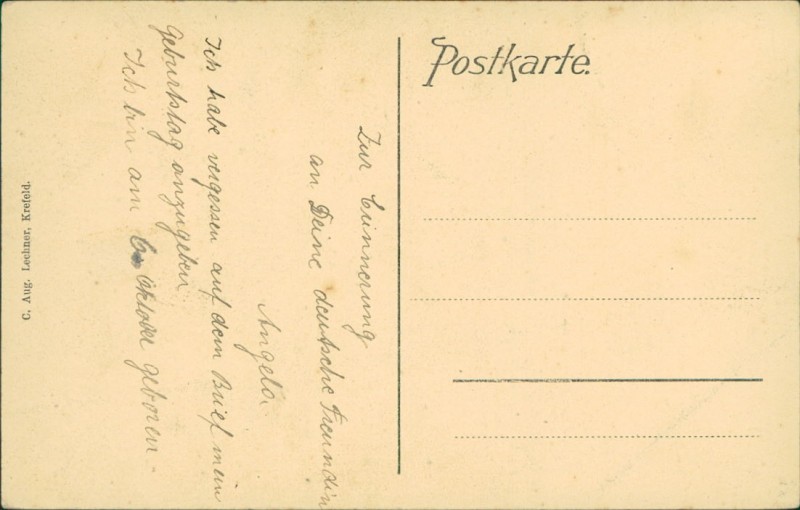 Postkarte.
Zur Erinnerung
an Deine deutsche Freundin
Angela.
Ich habe vergessen auf dem Brief mein
Geburtstag anzugeben
Ich bin am 6. Oktober geboren
C. Aug. Lechner, Krefeld.